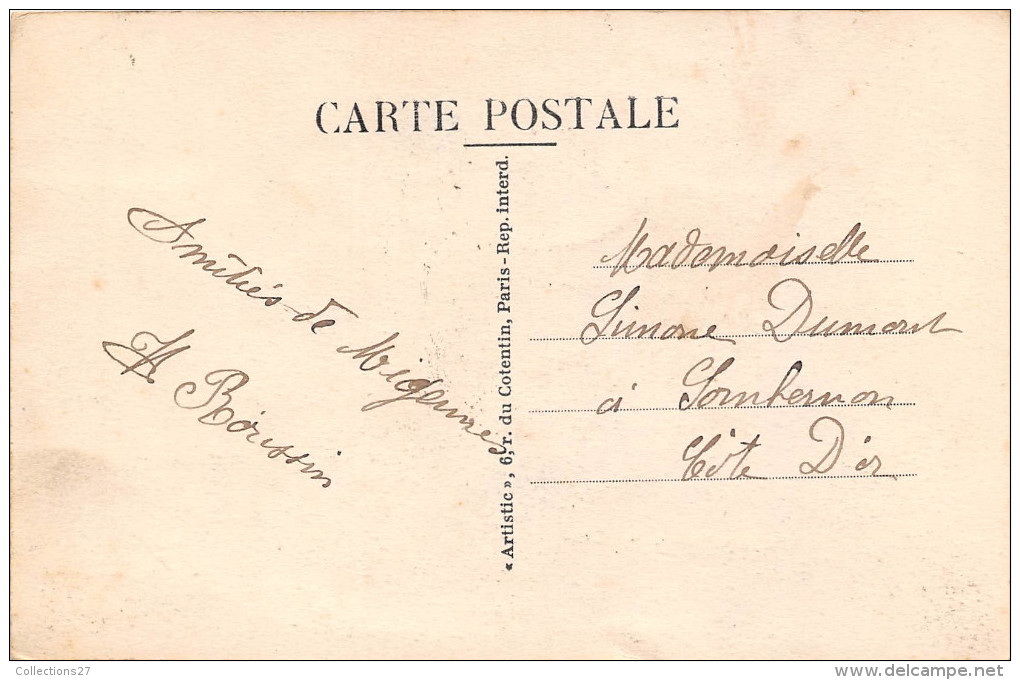 CARTE POSTALE
Amitiés de Migennes
H Boussin
« Artistic », 6, r. du Cotentin, Paris - Rep. interd.
Mademoiselle
Simone Dumont
à Sombernon
Côte D'or
Collections27
www.delcampe.net